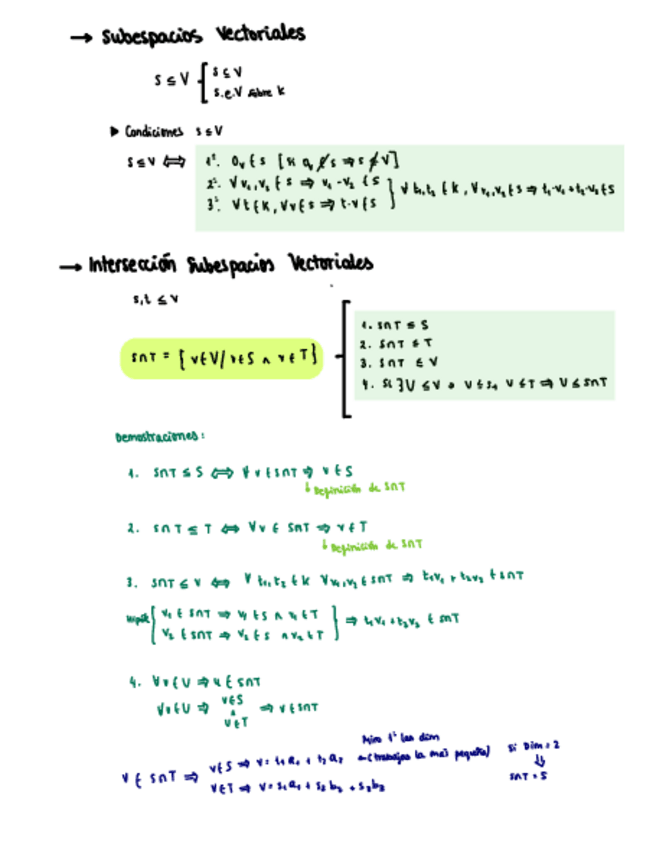 → Subespacios Vectoriales
S ≤ V { S ⊆ V
S.e.V sobre k
▶ Condiciones S ≤ V
S ≤ V ⇔ 1º. 0v ∈ S [si 0v ∉ S ⇒ S ≰ V]
2º. ∀ v₁, v₂ ∈ S ⇒ v₁ - v₂ ∈ S
3º. ∀ t ∈ k, ∀ v ∈ S ⇒ t·v ∈ S } ∀ t₁, t₂ ∈ k, ∀ v₁, v₂ ∈ S ⇒ t₁·v₁ + t₂·v₂ ∈ S
→ Intersección Subespacios Vectoriales
S, t ≤ V
S∩T = { v ∈ V / v ∈ S ∧ v ∈ T }
1. S∩T ≤ S
2. S∩T ≤ T
3. S∩T ≤ V
4. Si ∃ U ≤ V • U ≤ S, U ≤ T ⇒ U ≤ S∩T
Demostraciones:
1. S∩T ≤ S ⇔ ∀ v ∈ S∩T ⇒ v ∈ S
↓ Definición de S∩T
2. S∩T ≤ T ⇔ ∀ v ∈ S∩T ⇒ v ∈ T
↓ Definición de S∩T
3. S∩T ≤ V ⇔ ∀ t₁, t₂ ∈ k ∀ v₁, v₂ ∈ S∩T ⇒ t₁v₁ + t₂v₂ ∈ S∩T
{ v₁ ∈ S∩T ⇒ v₁ ∈ S ∧ v₁ ∈ T
v₂ ∈ S∩T ⇒ v₂ ∈ S ∧ v₂ ∈ T } ⇒ t₁v₁ + t₂v₂ ∈ S∩T
4. ∀ v ∈ U ⇒ u ∈ S∩T
∀ v ∈ U ⇒ v ∈ S ∧ v ∈ T ⇒ v ∈ S∩T
Miro 1º las dim
v ∈ S∩T ⇒ v ∈ S ⇒ v = t₁a₁ + t₂a₂ (trabajas la más pequeña) Si Dim = 2
v ∈ T ⇒ v = s₁a₁ + s₂b₂ + s₃b₃ ⇓ S∩T = S